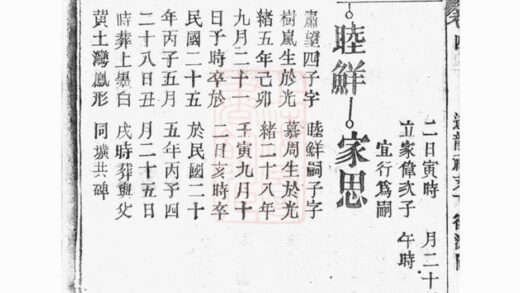 睦鮮
肅望四子字
樹嵐生於光
緒五年己卯
九月二十一
日子時卒於
民國二十五
年丙子五月
二十八日丑
時葬上墨白
黄土灣鳳形
二日寅時
立家偉次子
宜行爲嗣
家思
睦鮮嗣子字
慕周生於光
緒二十八年
壬寅九月十
二日亥時卒
於民國二十
五年丙子四
月二十五日
戌時葬與父
同壙共碑
月二十
午時